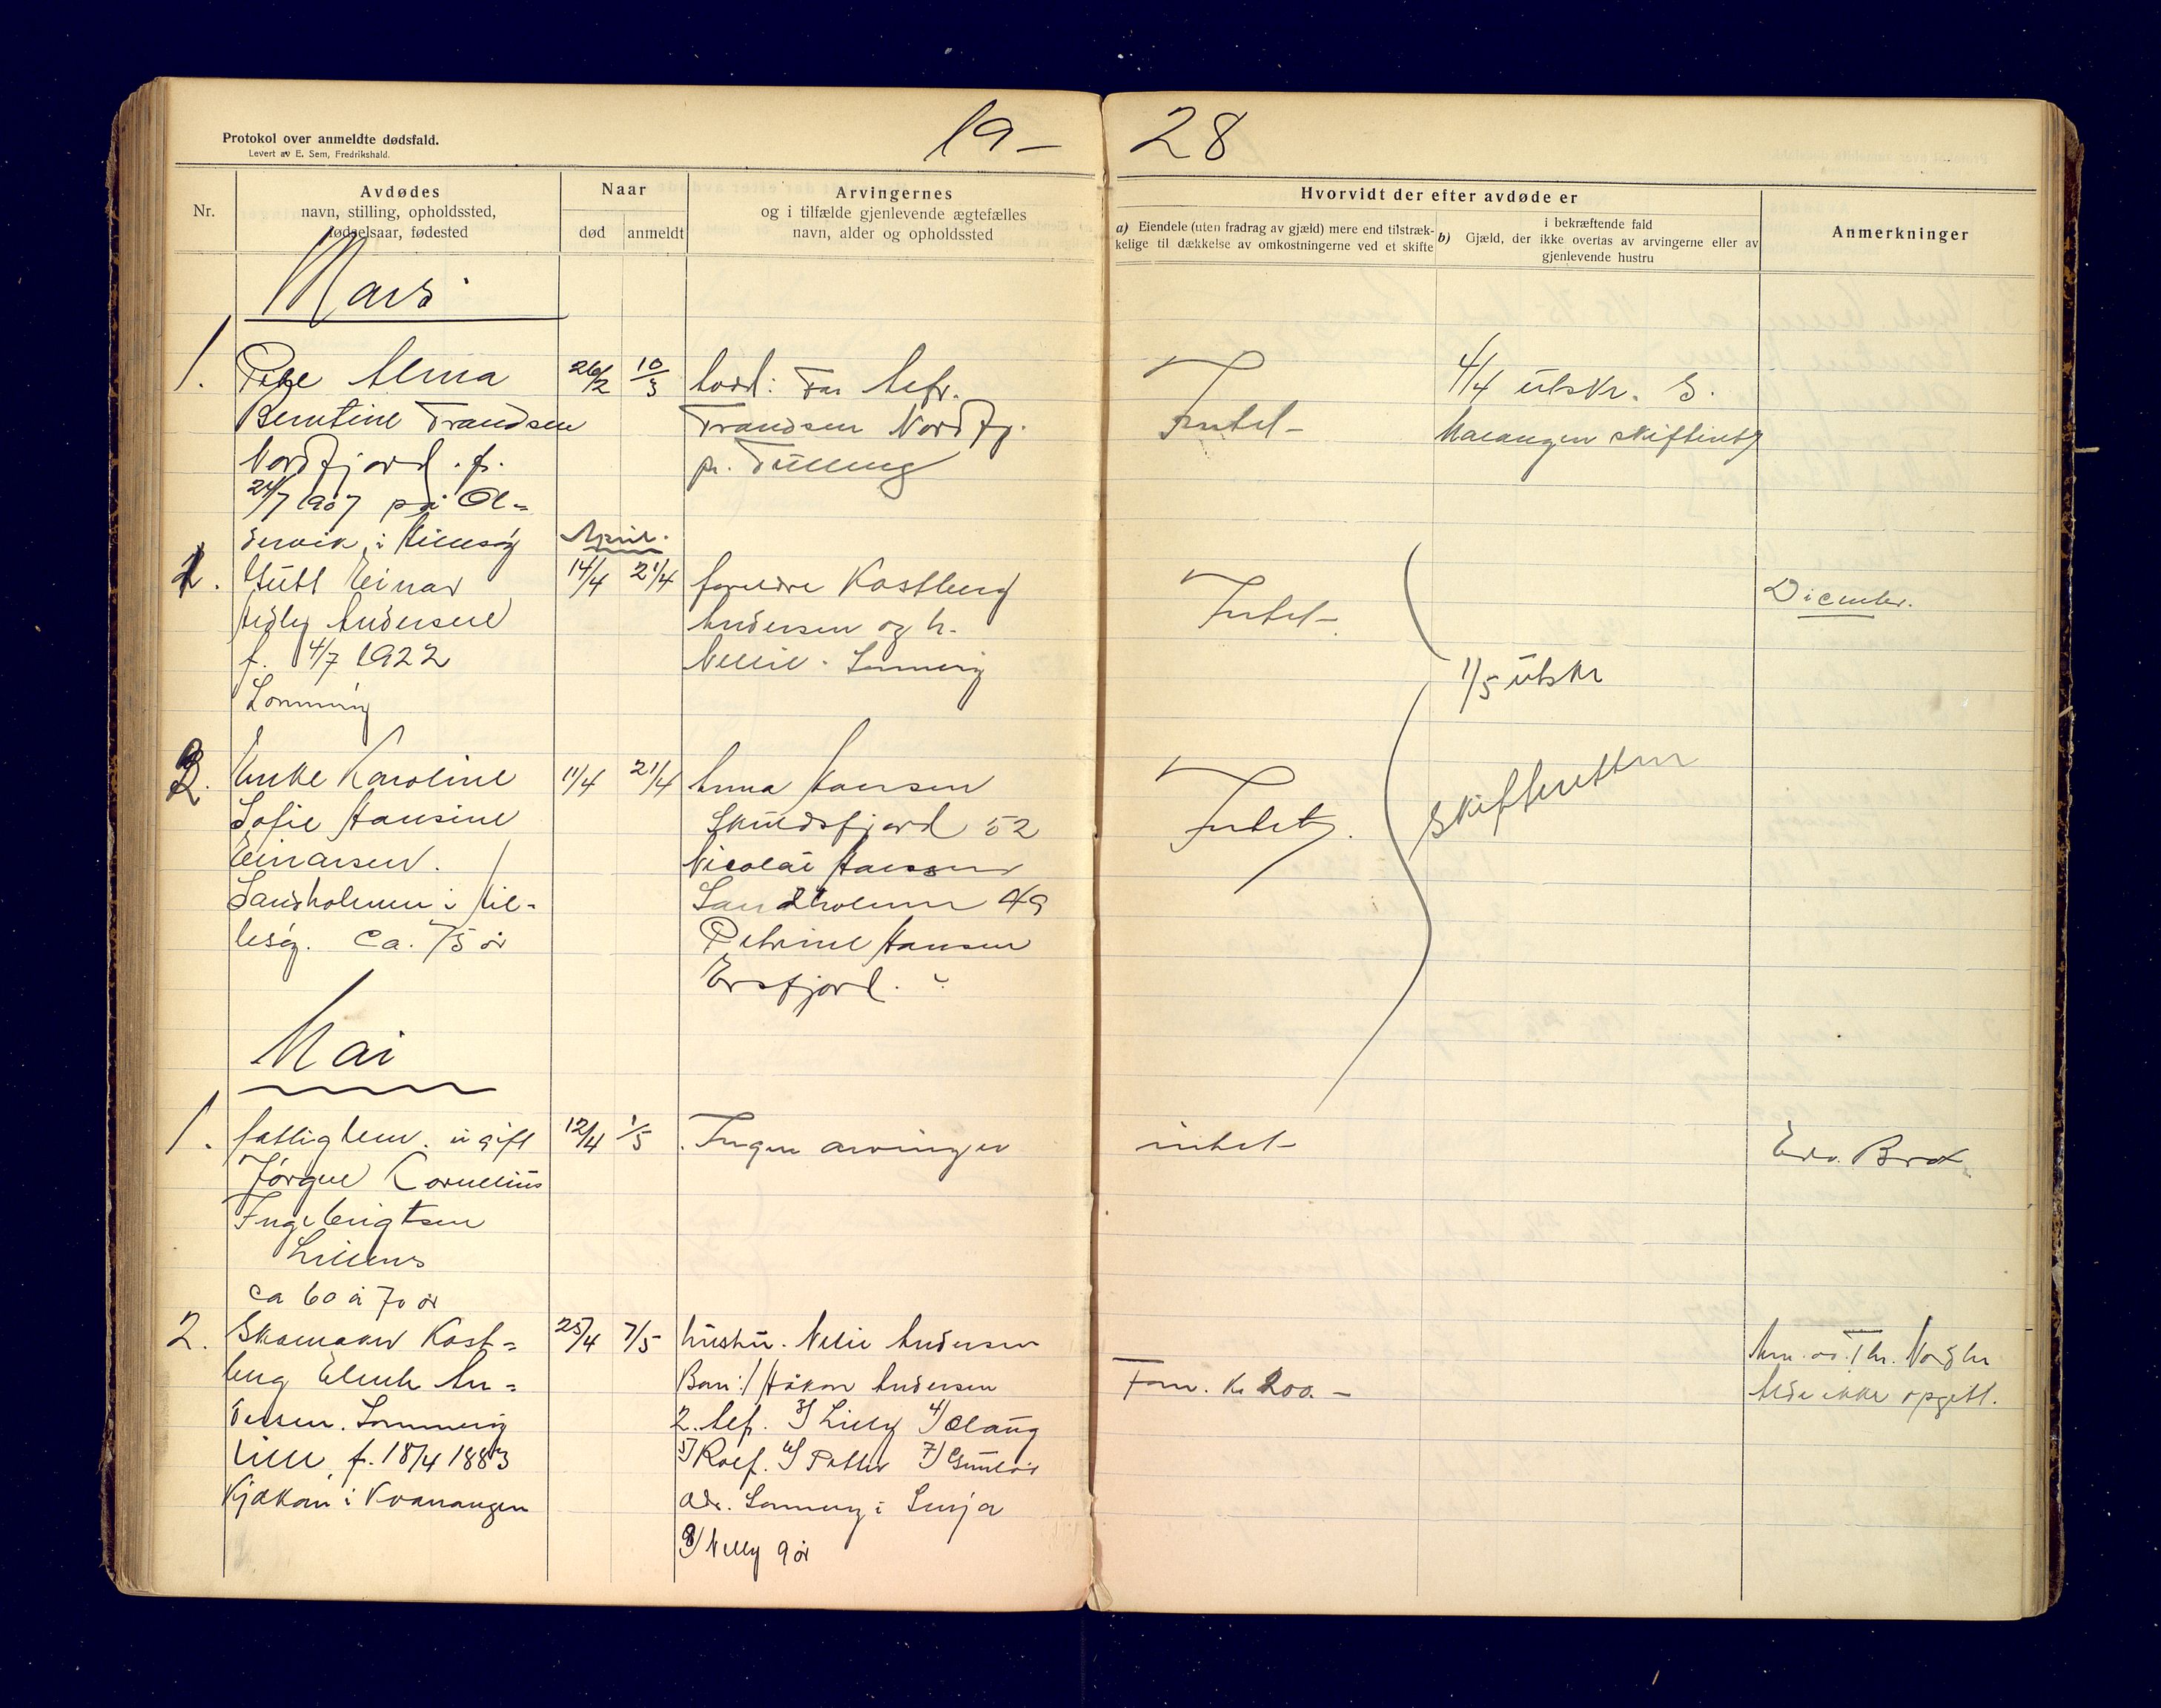 19 – 28
Protokol over anmeldte dødsfald.
Levert av E. Sem, Fredrikshald.
Nr.
Avdødes
navn, stilling, opholdssted,
fødselsaar, fødested
Naar
død
anmeldt
Arvingernes
og i tilfælde gjenlevende ægtefælles
navn, alder og opholdssted
Hvorvidt der efter avdøde er
a) Eiendele (uten fradrag av gjæld) mere end tilstræk-
kelige til dækkelse av omkostningerne ved et skifte
i bekræftende fald
b) Gjæld, der ikke overtas av arvingerne eller av
gjenlevende hustru
Anmerkninger
Mars
1. Pike Alma 26/2 10/3 Far Alfr. Intet – 4/4 utskr. S.
Berntine Frandsen Frandsen Nordfj. Malangen skifteret
Nordfjord. f. p.
24/7 1907 på Ol-
dervik i Hillesøy April.
1. Gutt Einar 14/4 21/4 foreldre Kostberg Intet – December.
Hedley Andersen Andersen og h.
f. 4/7 1922 Nellie. Lommerig
Lommerig 1/5 utskr
2. Enke Karoline 11/4 21/4 Anna Hansen Intet. skifteretten
Sofie Hansine Skuldsfjord 52
Einarsen. Nicolai Hansen
Sandholmen i Hil- Sandholmen 49
lesøy. ca. 75 år Petrine Hansen
Ersfjord.
Mai
1. fattiglem. ugift 12/4 1/5 Ingen arvinger intet – Edv. Brox
Jørgen Kornelius
Ingebrigtsen
ca 60 à 70 år
2. Skomaker Kost- 25/4 7/5 hustru. Nelie Andersen
berg Elerik An- Barn: 1/ Håkon Andersen Form. Kr 200. – ikke opgitt.
dersen. Lommerig 2. Alf. 3/ Lilly 4/ Olaug
f. 18/4 1883 5/ Rolf. 6/ Petter 7/
Kjækan i Kvænangen adr. Lommerig i Senja
8/ Nelly 9 år